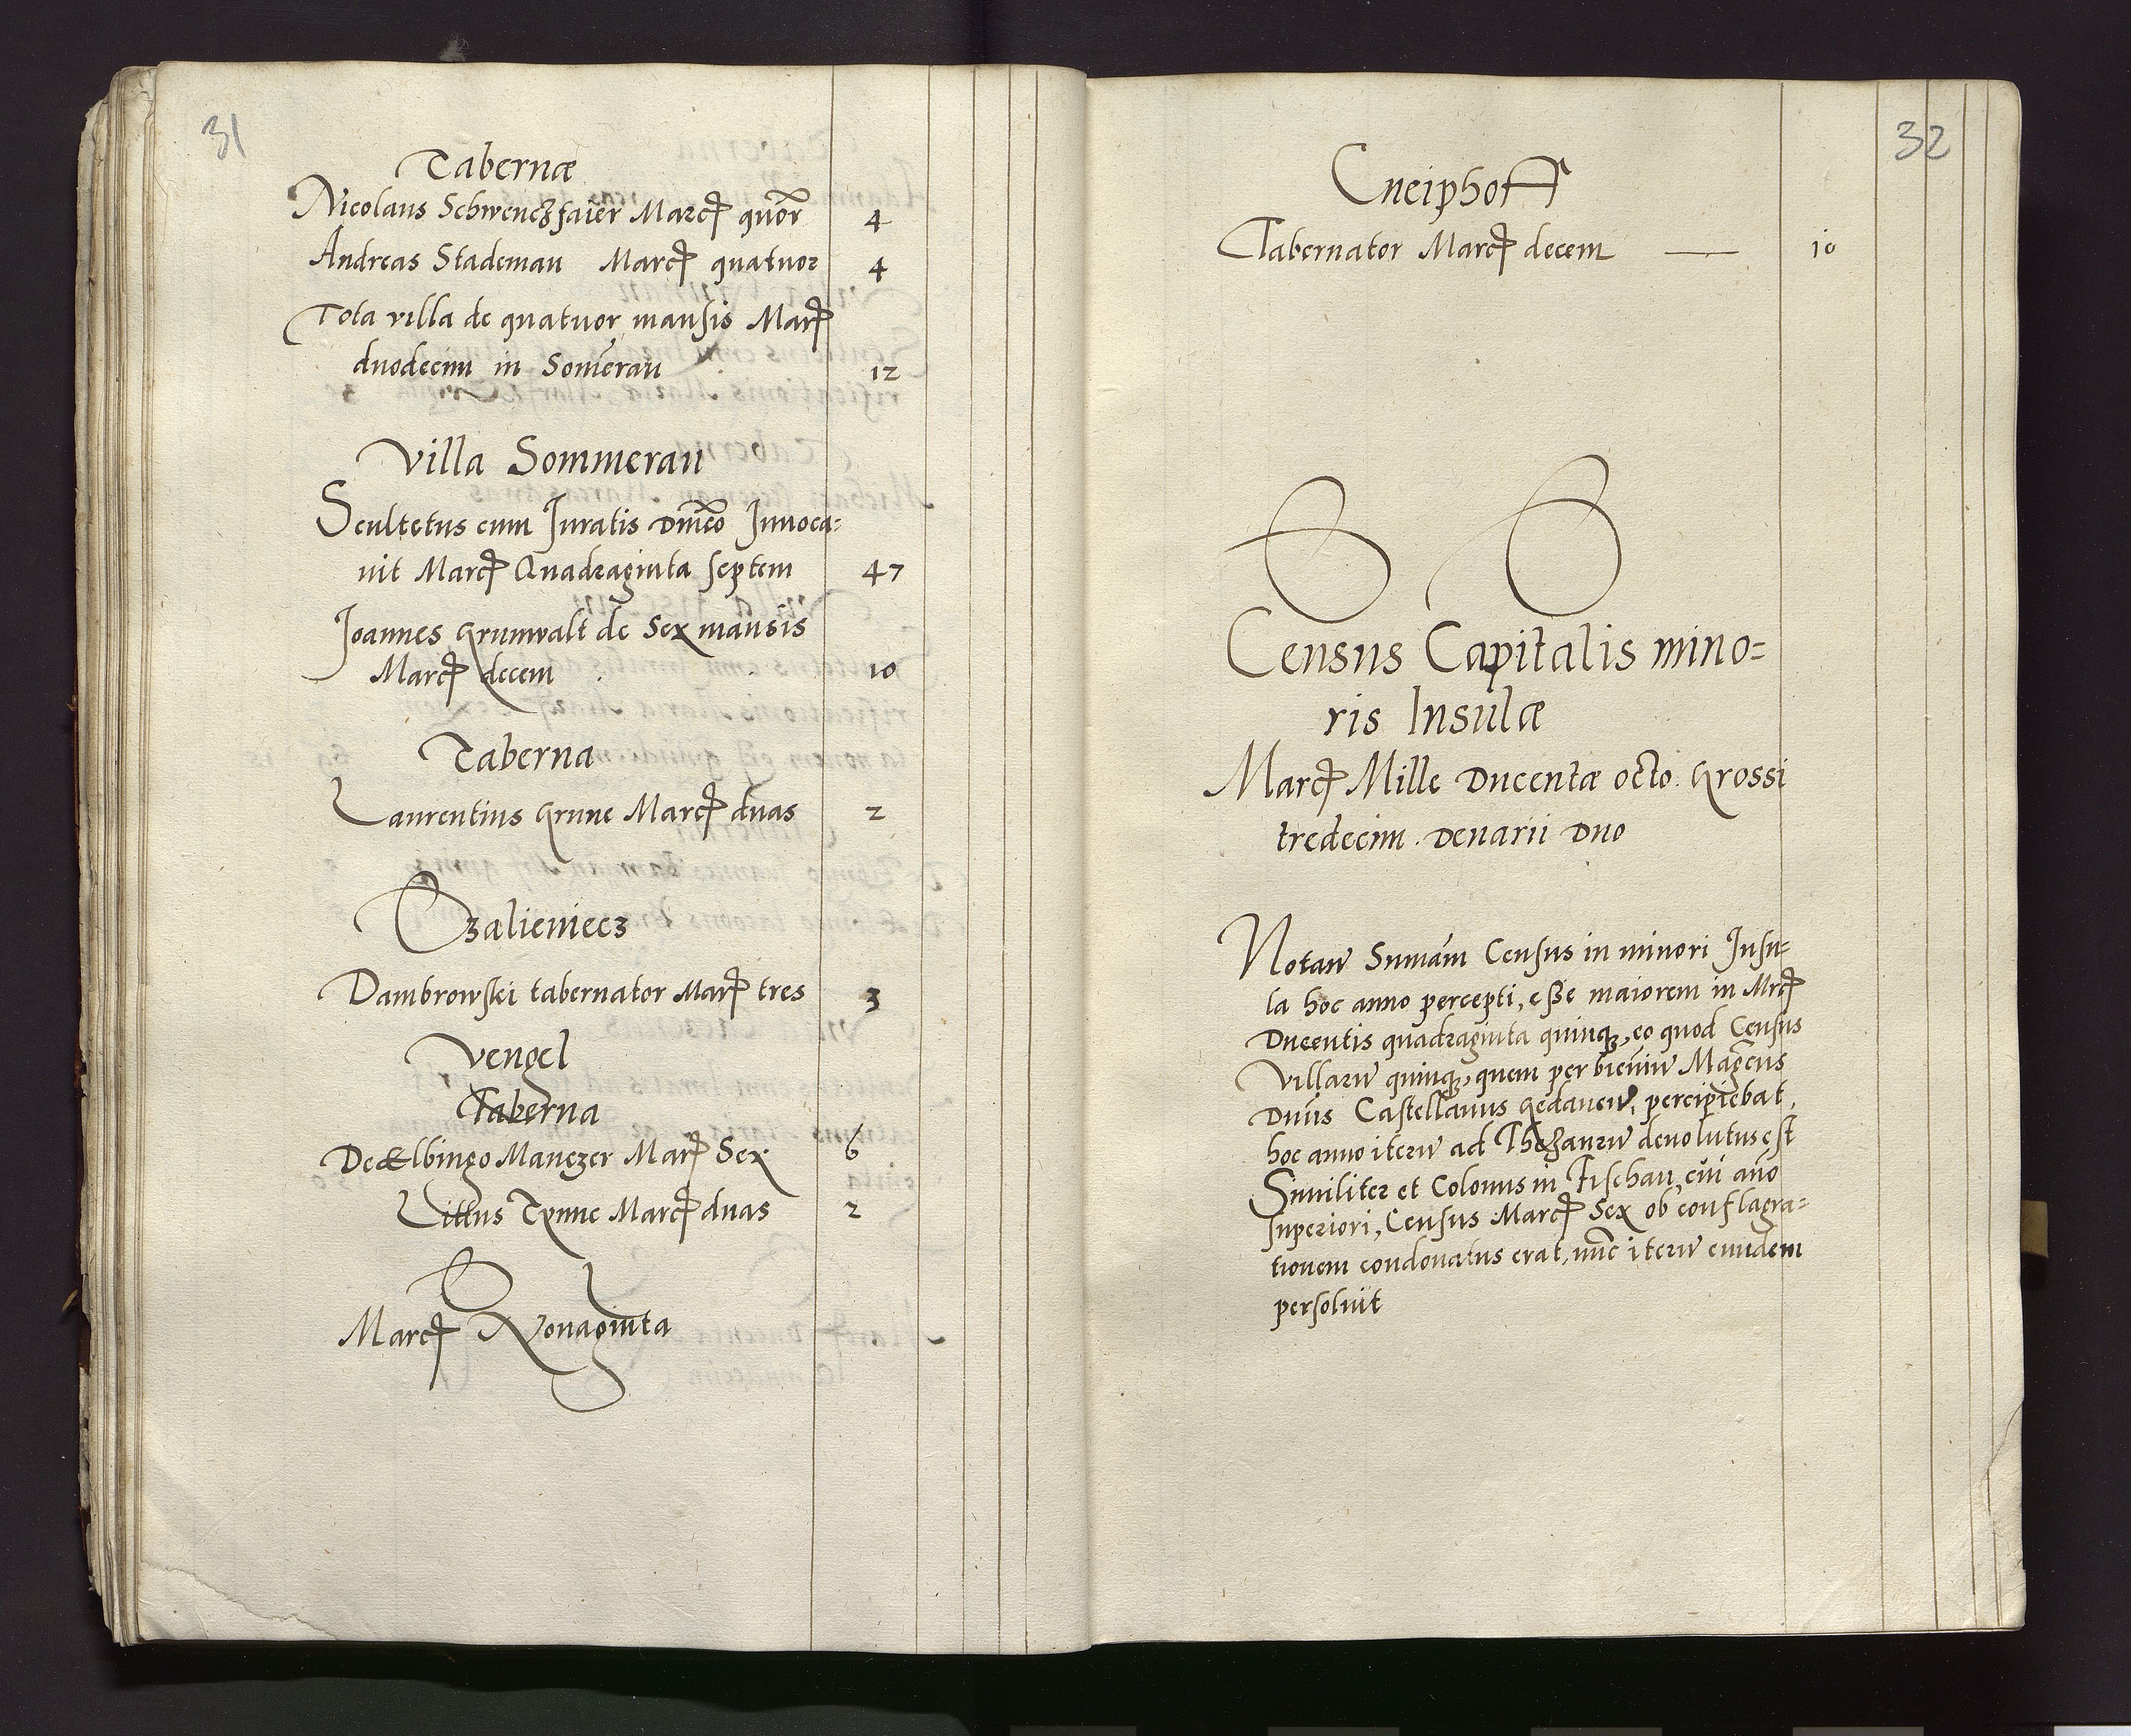 31
Tabernæ
Nicolaus Schwenczfaier Marcꝭ quõr 4
Andreas Stademan Marcꝭ quatuor 4
Tota villa de quatuor mansis Marꝭ
duodecim in Som̃erau 12
Villa Sommerau
Scultetus cum Juratis Dm̃co Inuoca=
uit Marcꝭ Quadraginta septem 47
Joannes Grunwalt de Sex mansis
Marcꝭ decem 10
Taberna
Laurentius Grune Marcꝭ duas 2
Czalieniecz
Dambrowski tabernator Marꝭ tres 3
Vengel
Taberna
De Elbingo Manczer Marꝭ Sex 6
Littus Tynne Marcꝭ duas 2
Marcꝭ Nonaginta
32
Cneiphoff
Tabernator Marcꝭ decem — 10
Census Capitalis mino=
ris Insulæ
Marcꝭ Mille Ducentæ octo. Grossi
tredecim. Denarii Duo
Notan̄ Sum̃am Census in minori Insu=
la hoc anno percepti, esse maiorem in Mrcꝭ
Ducentis quadraginta quinqꝫ, eo quod Census
Villarū quinqꝫ, quem per bieñiū Mag̃cus
Dñus Castellanus Gedaneñ, percipiebat,
hoc anno iterū ad Thezaurū deuolutus est
Similiter et Colonus in Fischau, cui año
superiori, Census Marcꝭ Sex ob conflagra=
tionem condonatus erat, nūc iterū eundem
persoluit